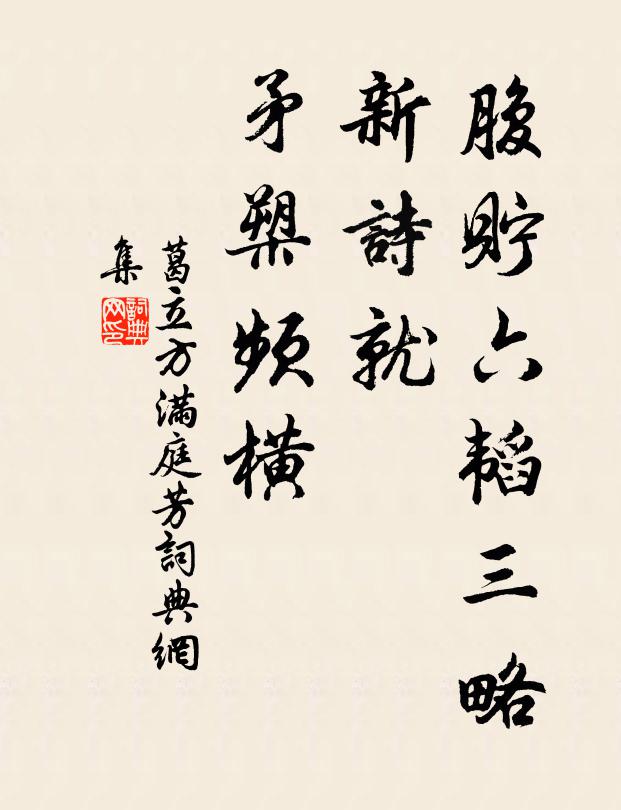 腹貯六韜三略
新詩就
矛槊頻橫
葛立方滿庭芳詞典網
集
詞典
网印